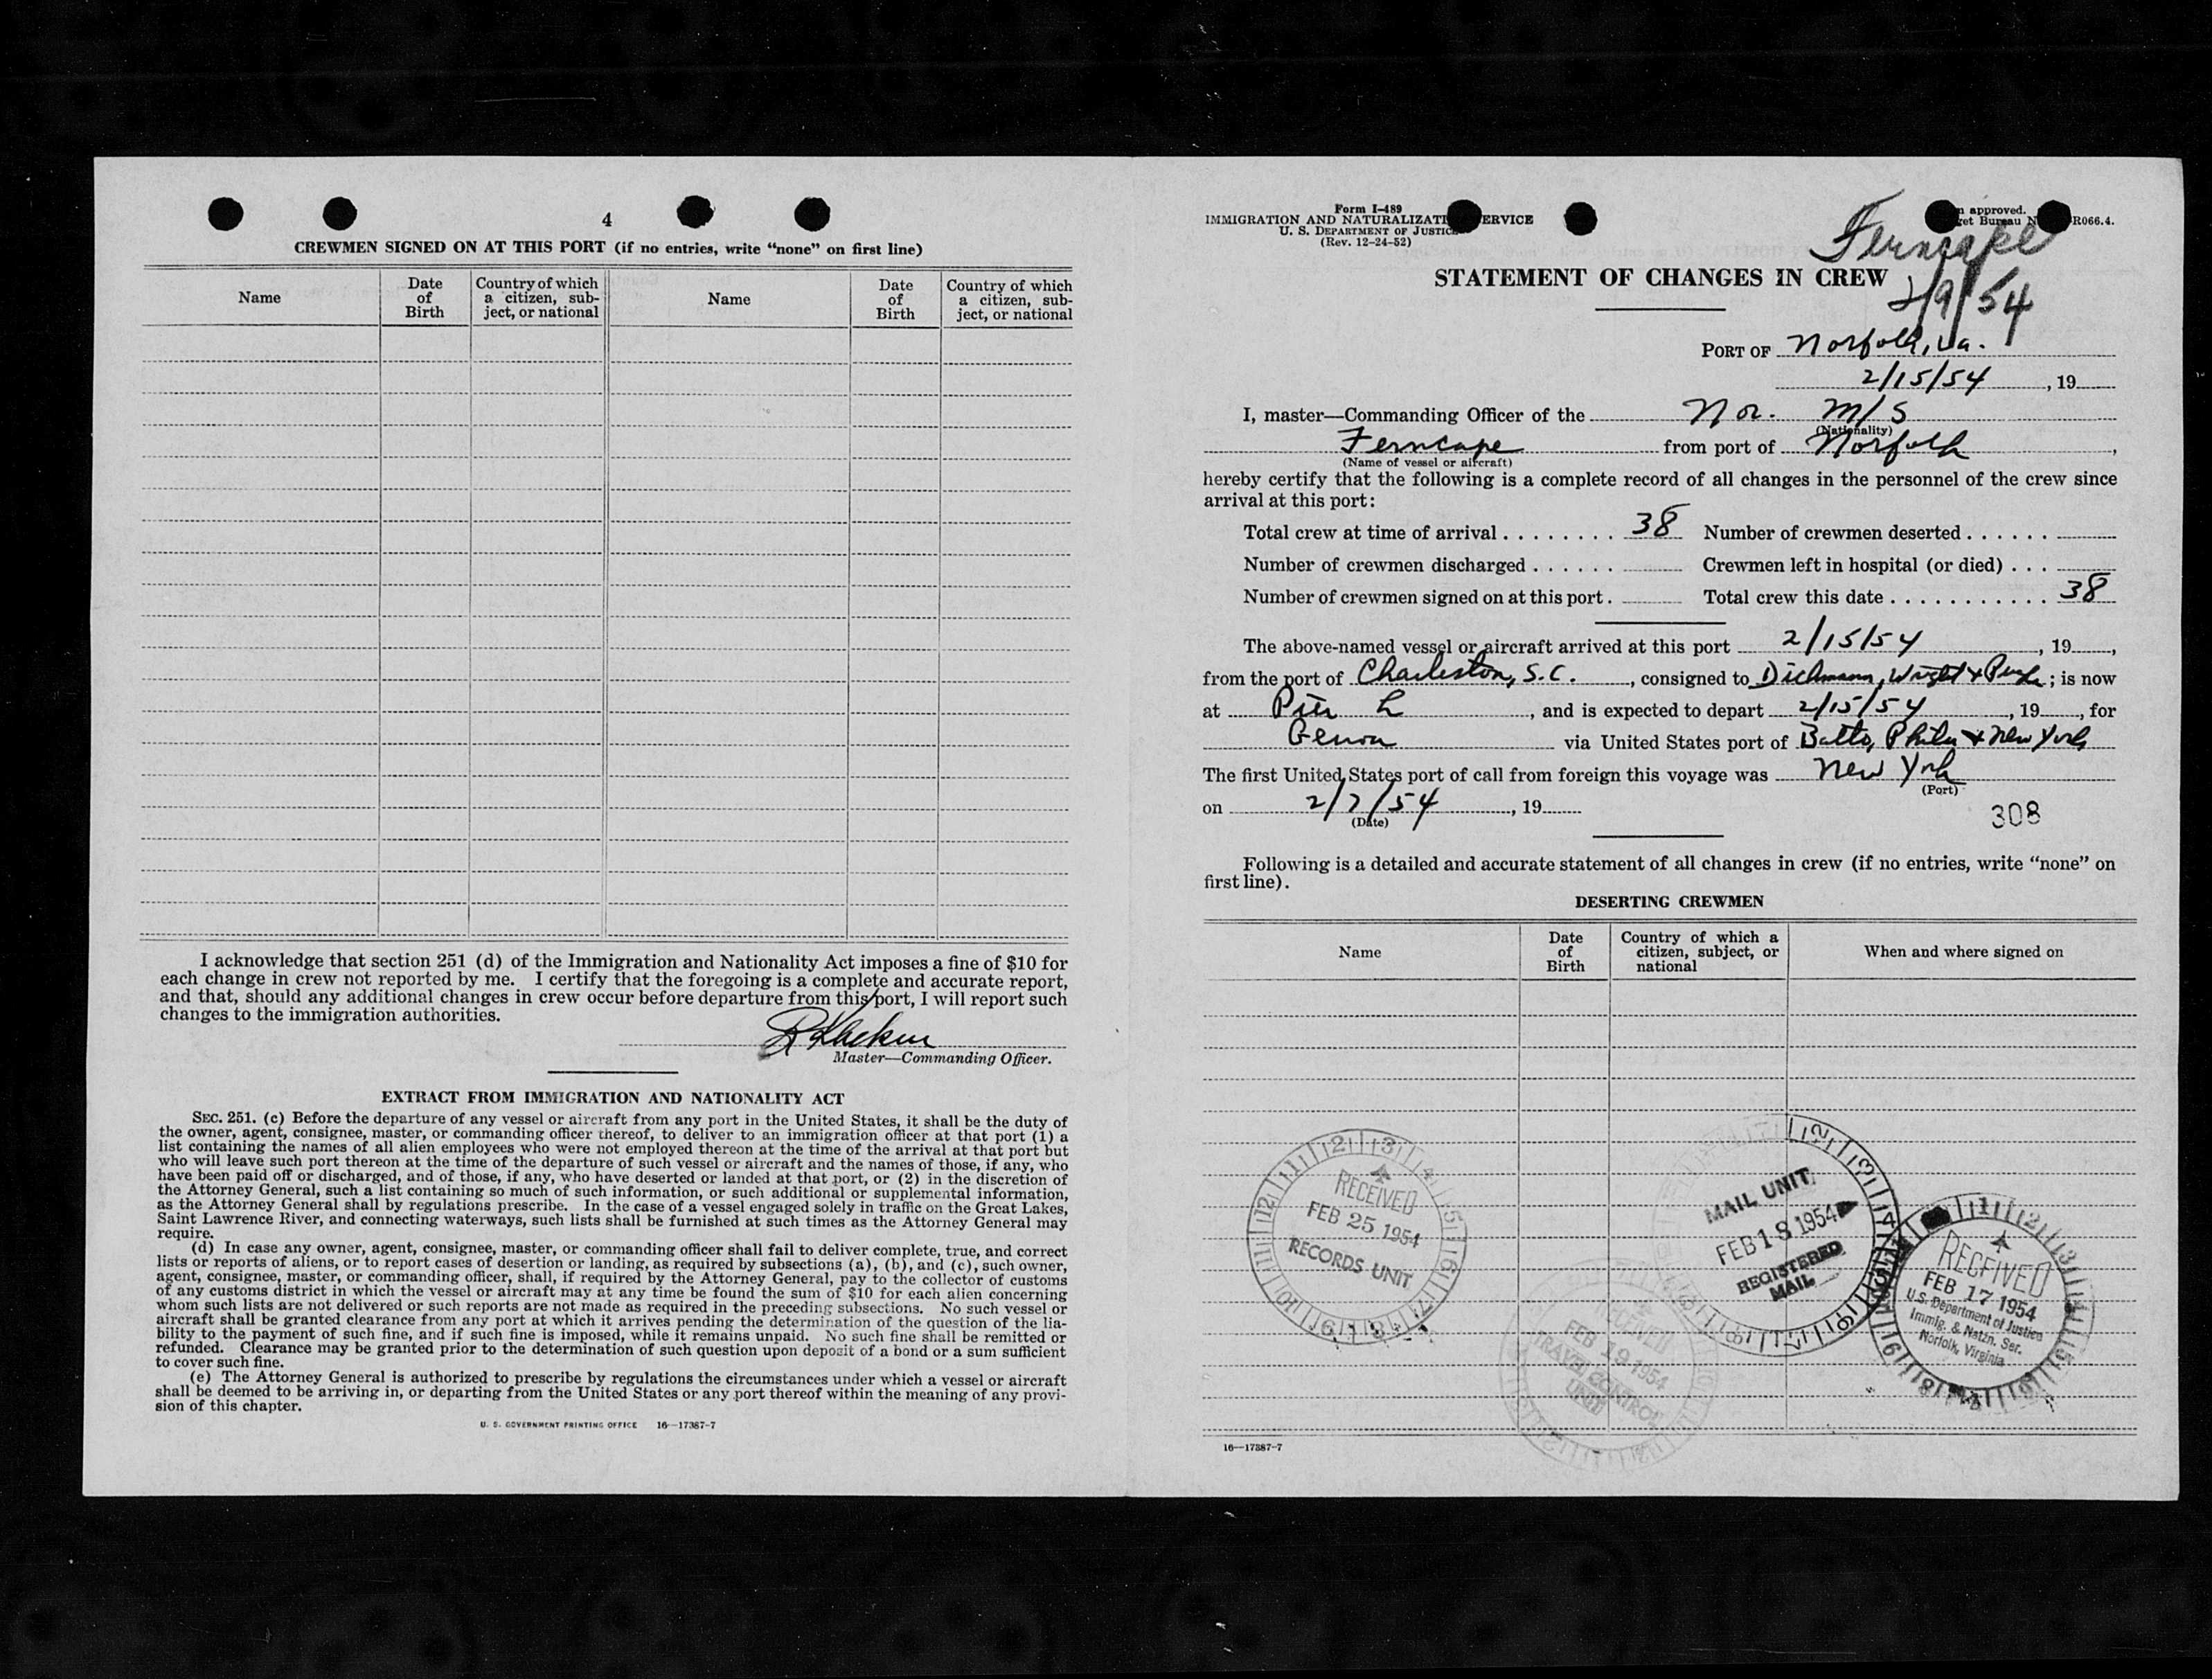 4
CREWMEN SIGNED ON AT THIS PORT (if no entries, write “none” on first line)
Name
Date of Birth
Country of which a citizen, sub-
ject, or national
Name
Date of Birth
Country of which a citizen, sub-
ject, or national
I acknowledge that section 251 (d) of the Immigration and Nationality Act imposes a fine of $10 for
each change in crew not reported by me. I certify that the foregoing is a complete and accurate report,
and that, should any additional changes in crew occur before departure from this port, I will report such
changes to the immigration authorities.
Master—Commanding Officer.
EXTRACT FROM IMMIGRATION AND NATIONALITY ACT
SEC. 251. (c) Before the departure of any vessel or aircraft from any port in the United States, it shall be the duty of
the owner, agent, consignee, master, or commanding officer thereof, to deliver to an immigration officer at that port (1) a
list containing the names of all alien employees who were not employed thereon at the time of the arrival at that port but
who will leave such port thereon at the time of the departure of such vessel or aircraft and the names of those, if any, who
have been paid off or discharged, and of those, if any, who have deserted or landed at that port, or (2) in the discretion of
the Attorney General, such a list containing so much of such information, or such additional or supplemental information,
as the Attorney General shall by regulations prescribe. In the case of a vessel engaged solely in traffic on the Great Lakes,
Saint Lawrence River, and connecting waterways, such lists shall be furnished at such times as the Attorney General may
require.
(d) In case any owner, agent, consignee, master, or commanding officer shall fail to deliver complete, true, and correct
lists or reports of aliens, or to report cases of desertion or landing, as required by subsections (a), (b), and (c), such owner,
agent, consignee, master, or commanding officer, shall, if required by the Attorney General, pay to the collector of customs
of any customs district in which the vessel or aircraft may at any time be found the sum of $10 for each alien concerning
whom such lists are not delivered or such reports are not made as required in the preceding subsections. No such vessel or
aircraft shall be granted clearance from any port at which it arrives pending the determination of the question of the lia-
bility to the payment of such fine, and if such fine is imposed, while it remains unpaid. No such fine shall be remitted or
refunded. Clearance may be granted prior to the determination of such question upon deposit of a bond or a sum sufficient
to cover such fine.
(e) The Attorney General is authorized to prescribe by regulations the circumstances under which a vessel or aircraft
shall be deemed to be arriving in, or departing from the United States or any port thereof within the meaning of any provi-
sion of this chapter.
U. S. GOVERNMENT PRINTING OFFICE 16—17387-7
Form I-489
IMMIGRATION AND NATURALIZATI ERVICE
U. S. DEPARTMENT OF JUSTICE
(Rev. 12-24-52)
approved.
get Bureau N R066.4.
Ferncape
2/9/54
STATEMENT OF CHANGES IN CREW
PORT OF Norfolk, Va.
2/15/54, 19
I, master—Commanding Officer of the Nor. M/S
(Nationality)
Ferncape from port of Norfolk,
(Name of vessel or aircraft)
hereby certify that the following is a complete record of all changes in the personnel of the crew since
arrival at this port:
Total crew at time of arrival . . . . . . . . 38 Number of crewmen deserted . . . . . .
Number of crewmen discharged . . . . . . Crewmen left in hospital (or died) . . .
Number of crewmen signed on at this port . Total crew this date . . . . . . . . . . . . 38
The above-named vessel or aircraft arrived at this port 2/15/54, 19,
from the port of Charleston, S.C., consigned to Dichmann, Wright & Pugh; is now
at Pier L, and is expected to depart 2/15/54, 19, for
Genoa via United States port of Balto, Phila & New York
The first United States port of call from foreign this voyage was New York
(Port)
on 2/7/54, 19
(Date)
308
Following is a detailed and accurate statement of all changes in crew (if no entries, write “none” on
first line).
DESERTING CREWMEN
Name
Date of Birth
Country of which a citizen, subject, or national
When and where signed on
RECEIVED
FEB 25 1954
RECORDS UNIT
MAIL UNIT
FEB 18 1954
REGISTERED
MAIL
RECEIVED
FEB 17 1954
U.S. Department of Justice
Immig. & Natzn. Ser.
Norfolk, Virginia
RECEIVED
FEB 19 1954
TRAVEL CONTROL
UNIT
16—17387-7